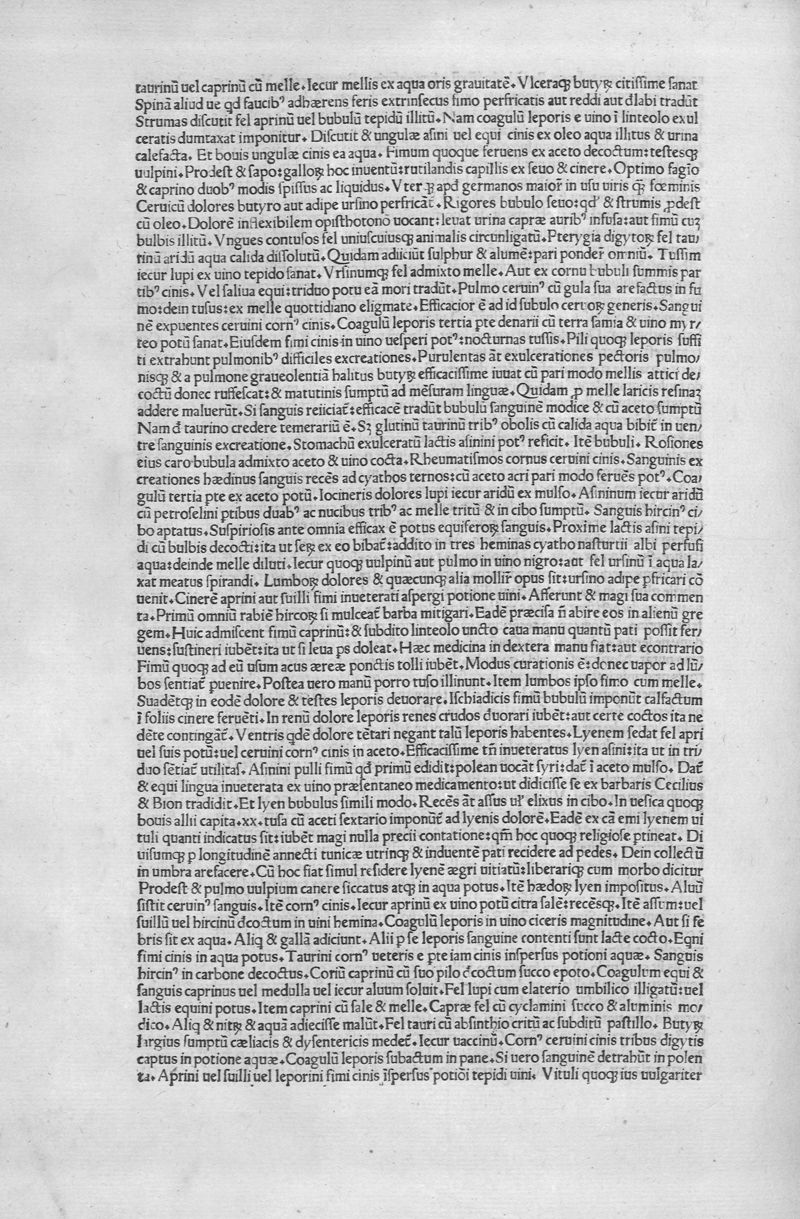 taurinū uel caprinū cū melle. Iecur mellis ex aqua oris grauitatē. Vlceraqꝫ butyꝝ citiſſime ſanat
Spinā aliud ue qd faucibꝰ adhærens feris extrinſecus fimo perfricatis aut reddi aut dlabi tradūt
Strumas diſcutit fel aprinū uel bubulū tepidū illitū. Nam coagulū leporis e uino ī linteolo exul
ceratis dumtaxat imponitur. Diſcutit & ungulæ aſini uel equi cinis ex oleo aqua illitus & urina
calefacta. Et bouis ungulæ cinis ea aqua. Fimum quoque feruens ex aceto decoctum: teſtesqꝫ
uulpini. Prodeſt & ſapo: galloꝝ hoc inuentū: rutilandis capillis ex ſeuo & cinere. Optimo fagio
& caprino duobꝰ modis ſpiſſus ac liquidus. Vterqꝫ apd germanos maior̄ in uſu uiris qꝫ fœminis
Ceruicū dolores butyro aut adipe urſino perfricāt̄. Rigores bubulo ſeuo: qd' & ſtrumis ꝓdeſt
cū oleo. Dolorē inflexibilem opiſthotonō uocant: leuat urina capræ auribꝰ infuſa: aut fimū cuꝫ
bulbis illitū. Vngues contuſos fel uniuſcuiusqꝫ animalis circunligatū. Pterygia digytoꝝ fel tau/
rinū aridū aqua calida diſſolutū. Quidam adiiciūt ſulphur & alumē: pari ponder̄ omniū. Tuſſim
iecur lupi ex uino tepido ſanat. Vrſinumqꝫ fel admixto melle. Aut ex cornu bubuli ſummis par
tibꝰ cinis. Vel ſaliua equi: triduo potu eā mori tradūt. Pulmo ceruinꝰ cū gula ſua arefactus in fu
mo: dein tuſus: ex melle quottidiano eligmate. Efficacior ē ad id ſubulo ceruoꝝ generis. Sangui
nē expuentes ceruini cornꝰ cinis. Coagulū leporis tertia ꝑte denarii cū terra ſamia & uino myr/
teo potū ſanat. Eiuſdem fimi cinis in uino ueſperi potꝰ: nocturnas tuſſis. Pili quoqꝫ leporis ſuffi
ti extrahunt pulmonibꝰ difficiles excreationes. Purulentas āt exulcerationes pectoris pulmo/
nisqꝫ & a pulmone graueolentiā halitus butyꝝ efficaciſſime iuuat cū pari modo mellis attici de/
coctū donec ruffeſcat: & matutinis ſumptū ad mēſuram linguæ. Quidam ꝓ melle laricis reſinaꝫ
addere maluerūt. Si ſanguis reiiciat̄: efficacē tradūt bubulū ſanguinē modice & cū aceto ſumptū
Nam d̄ taurino credere temerariū ē. Sꝫ glutinū taurinū tribꝰ obolis cū calida aqua bibit̄ in uen/
tre ſanguinis excreatione. Stomachū exulceratū lactis aſinini potꝰ reficit. Itē bubuli. Roſiones
eius caro bubula admixto aceto & uino cocta. Rheumatiſmos cornus ceruini cinis. Sanguinis ex
creationes hædinus ſanguis recēs ad cyathos ternos: cū aceto acri pari modo feruēs potꝰ. Coa/
gulū tertia ꝑte ex aceto potū. Iocineris dolores lupi iecur aridū ex mulſo. Aſininum iecur aridū
cū petroſelini ꝑtibus duabꝰ ac nucibus tribꝰ ac melle tritū & in cibo ſumptū. Sanguis hircinꝰ ci/
bo aptatus. Suſpirioſis ante omnia efficax ē potus equiferoꝝ ſanguis. Proxime lactis aſini tepi/
di cū bulbis decocti: ita ut ſeꝝ ex eo bibat̄: addito in tres heminas cyatho naſturtii albi perfuſi
aqua: deinde melle diluti. Iecur quoqꝫ uulpinū aut pulmo in uino nigro: aut fel urſinū ī aqua la/
xat meatus ſpirandi. Lumboꝝ dolores & quæcunqꝫ alia mollir̄ opus ſit: urſino adipe ꝑfricari cō
uenit. Cinerē aprini aut ſuilli fimi inueterati aſpergi potione uini. Afferunt & magi ſua commen
ta. Primū omniū rabiē hircoꝝ ſi mulceat̄ barba mitigari. Eadē præciſa n̄ abire eos in alienū gre
gem. Huic admiſcent fimū caprinū: & ſubdito linteolo uncto caua manu quantū pati poſſit fer/
uens: ſuſtineri iubēt: ita ut ſi leua ps doleat. Hæc medicina in dextera manu fiat: aut econtrario
Fimū quoqꝫ ad eū uſum acus æreæ ponctis tolli iubēt. Modus curationis ē: donec uapor ad lū/
bos ſentiat̄ puenire. Poſtea uero manū porro tuſo illinunt. Item lumbos ipſo fimo cum melle.
Suadētqꝫ in eodē dolore & teſtes leporis deuorare. Iſchiadicis fimū bubulū imponūt calfactum
ī foliis cinere feruēti. In renū dolore leporis renes crudos duorari iubēt: aut certe coctos ita ne
dēte contingāt̄. Ventris qdē dolore tētari negant talū leporis habentes. Lyenem ſedat fel apri
uel ſuis potū: uel ceruini cornꝰ cinis in aceto. Efficaciſſime tn̄ inueteratus lyen aſini: ita ut in tri/
duo ſētiat̄ utilitaſ. Aſinini pulli fimū qd primū edidit: polean uocāt ſyri: dat̄ ī aceto mulſo. Dat̄
& equi lingua inueterata ex uino præſentaneo medicamento: ut didiciſſe ſe ex barbaris Cecilius
& Bion tradidit. Et lyen bubulus ſimili modo. Recēs āt aſſus ul' elixus in cibo. In ueſica quoqꝫ
bouis allii capita.xx. tuſa cū aceti ſextario imponūt̄ ad lyenis dolorē. Eadē ex cā emi lyenem ui
tuli quanti indicatus ſit: iubēt magi nulla precii contatione: qm̄ hoc quoqꝫ religioſe ꝑtineat. Di
uiſumqꝫ ꝑ longitudinē annecti tunicæ utrinqꝫ & induentē pati recidere ad pedes. Dein collectū
in umbra arefacere. Cū hoc fiat ſimul reſidere lyenē ægri uitiatū: liberariqꝫ eum morbo dicitur
Prodeſt & pulmo uulpium canere ſiccatus atqꝫ in aqua potus. Itē hædoꝝ lyen impoſitus. Aluū
ſiſtit ceruinꝰ ſanguis. Itē cornꝰ cinis. Iecur aprinū ex uino potū citra ſalē: recēsqꝫ. Itē aſſum: uel
ſuillū uel hircinū dcoctum in uini hemina. Coagulū leporis in uino ciceris magnitudine. Aut ſi fe
bris ſit ex aqua. Aliqꝫ & gallā adiciunt. Alii ꝑ ſe leporis ſanguine contenti ſunt lacte cocto. Eqni
fimi cinis in aqua potus. Taurini cornꝰ ueteris e ꝑte iam cinis inſperſus potioni aquæ. Sanguis
hircinꝰ in carbone decoctus. Coriū caprinū cū ſuo pilo dcoctum ſucco epoto. Coagulum equi &
ſanguis caprinus uel medulla uel iecur aluum ſoluit. Fel lupi cum elaterio umbilico illigatū: uel
lactis equini potus. Item caprini cū ſale & melle. Capræ fel cū cyclamini ſucco & aluminis mo/
dico. Aliqꝫ & nitꝝ & aquā adieciſſe malūt. Fel tauri cū abſinthio critū ac ſubditū paſtillo. Butyꝝ
largius ſumptū cæliacis & dyſentericis medet̄. Iecur uaccinū. Cornꝰ ceruini cinis tribus digytis
captus in potione aquæ. Coagulū leporis ſubactum in pane. Si uero ſanguinē detrahūt in polen
ta. Aprini uel ſuilli uel leporini fimi cinis īſperſus potiōi tepidi uini. Vituli quoqꝫ ius uulgariter